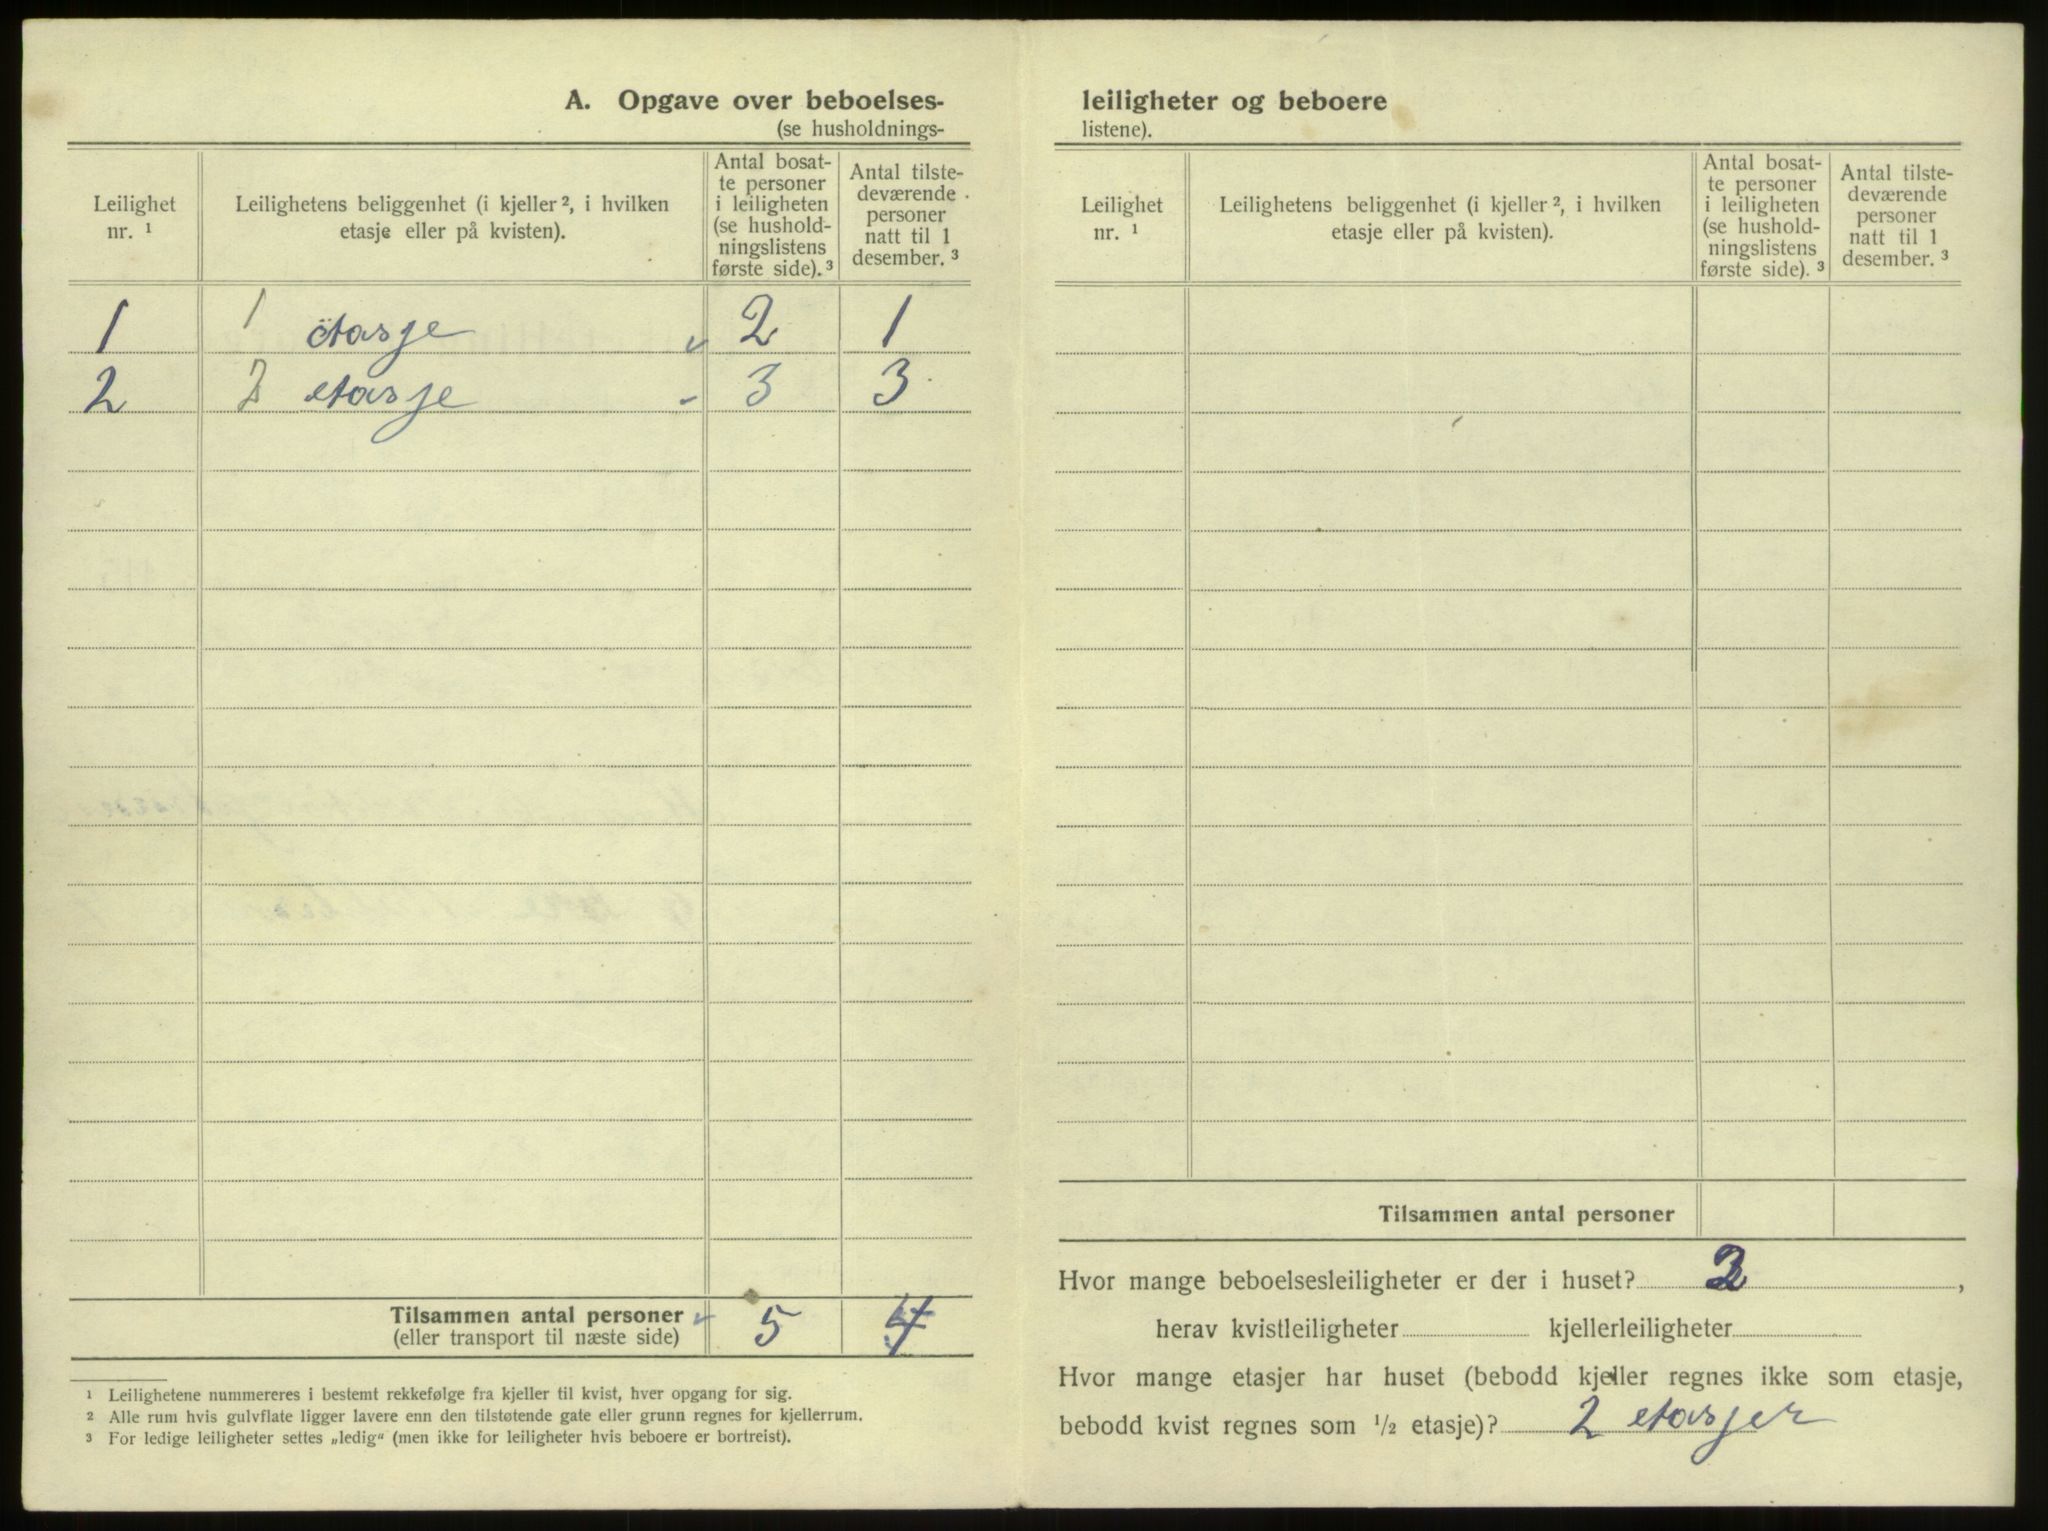 A. Opgave over beboelses-
(se husholdnings-
Leilighet
nr. ¹
Leilighetens beliggenhet (i kjeller ², i hvilken
etasje eller på kvisten).
Antal bosat-
te personer
i leiligheten
(se hushold-
ningslistens
første side). ³
Antal tilste-
deværende
personer
natt til 1
desember. ³
1 1 etasje 2 1
2 2 etasje 3 3
Tilsammen antal personer
(eller transport til næste side)
5 4
¹ Leilighetene nummereres i bestemt rekkefølge fra kjeller til kvist, hver opgang for sig.
² Alle rum hvis gulvflate ligger lavere enn den tilstøtende gate eller grunn regnes for kjellerrum.
³ For ledige leiligheter settes „ledig“ (men ikke for leiligheter hvis beboere er bortreist).
leiligheter og beboere
listene).
Leilighet
nr. ¹
Leilighetens beliggenhet (i kjeller ², i hvilken
etasje eller på kvisten).
Antal bosat-
te personer
i leiligheten
(se hushold-
ningslistens
første side). ³
Antal tilste-
deværende
personer
natt til 1
desember. ³
Tilsammen antal personer
Hvor mange beboelsesleiligheter er der i huset? 2,
herav kvistleiligheter kjellerleiligheter
Hvor mange etasjer har huset (bebodd kjeller regnes ikke som etasje,
bebodd kvist regnes som ½ etasje)? 2 etasjer